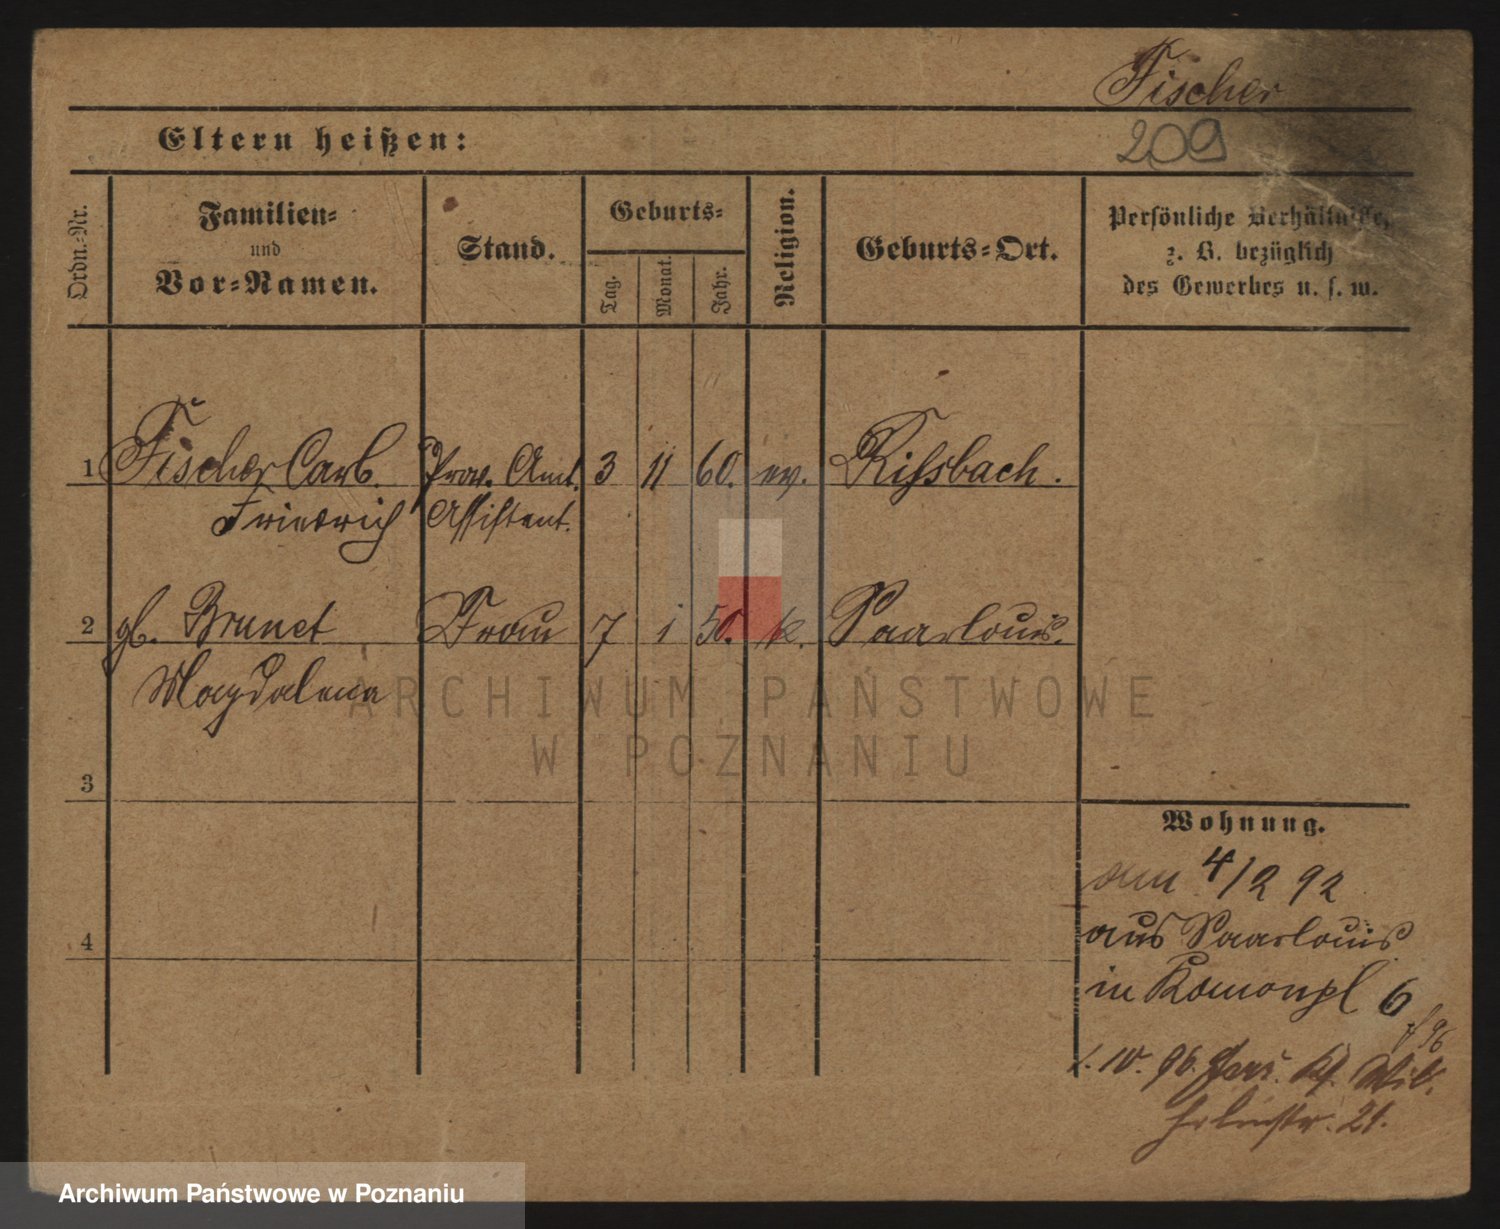 Fischer
209
Eltern heißen:
Ordn.-Nr.
Familien-
und
Vor-Namen.
Stand.
Geburts-
Tag.
Monat.
Jahr.
Religion.
Geburts-Ort.
Persönliche Verhältnisse,
z. B. bezüglich
des Gewerbes u. s. w.
1 Fischer Carl Prov. Amt. 3 11 60. ev. Rissbach.
Friedrich Assistent.
2 gb. Brunet Frau 7 1 50. k. Saarlouis.
Magdalena
3
4
Wohnung.
am 4/2 92
aus Saarlouis
in 6
96
1. 10. 96.
21.
ARCHIWUM PAŃSTWOWE
W POZNANIU
Archiwum Państwowe w Poznaniu